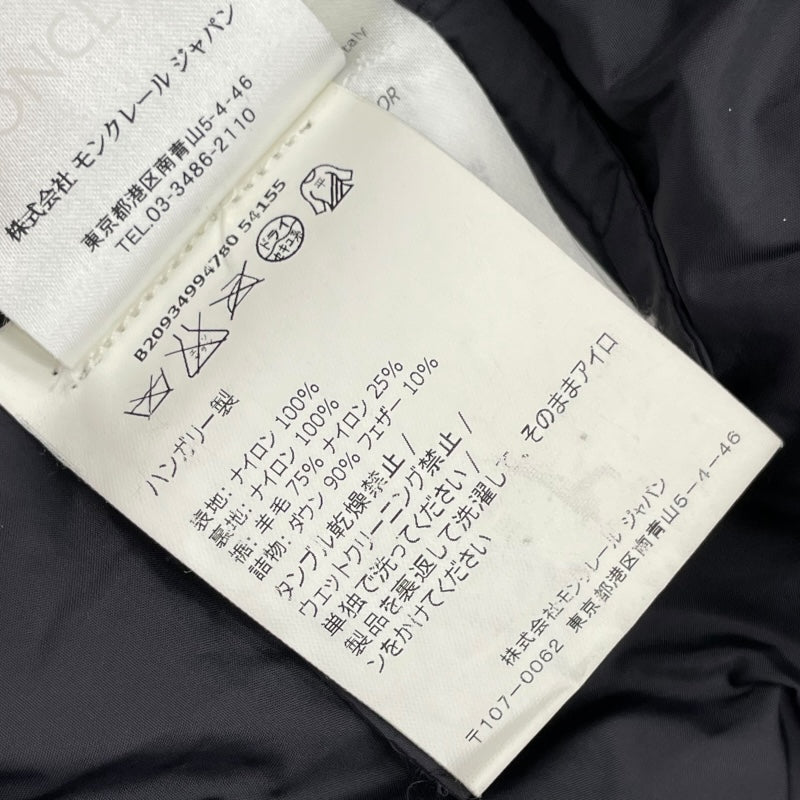 ONCLE
株式会社 モンクレール ジャパン
東京都港区南青山5-4-46
TEL.03-3486-2110
Italy
OR
B20934994780 54155
ドライ
セキユ系
平
ハンガリー製
表地: ナイロン 100%
裏地: ナイロン 100%
裾: 羊毛 75% ナイロン 25%
詰物: ダウン 90% フェザー 10%
タンブル乾燥禁止 /
ウェットクリーニング禁止 /
単独で洗ってください /
製品を裏返して洗濯し そのままアイロ
ンをかけてください
株式会社モンクレール ジャパン
〒107-0062 東京都港区南青山5-4-46